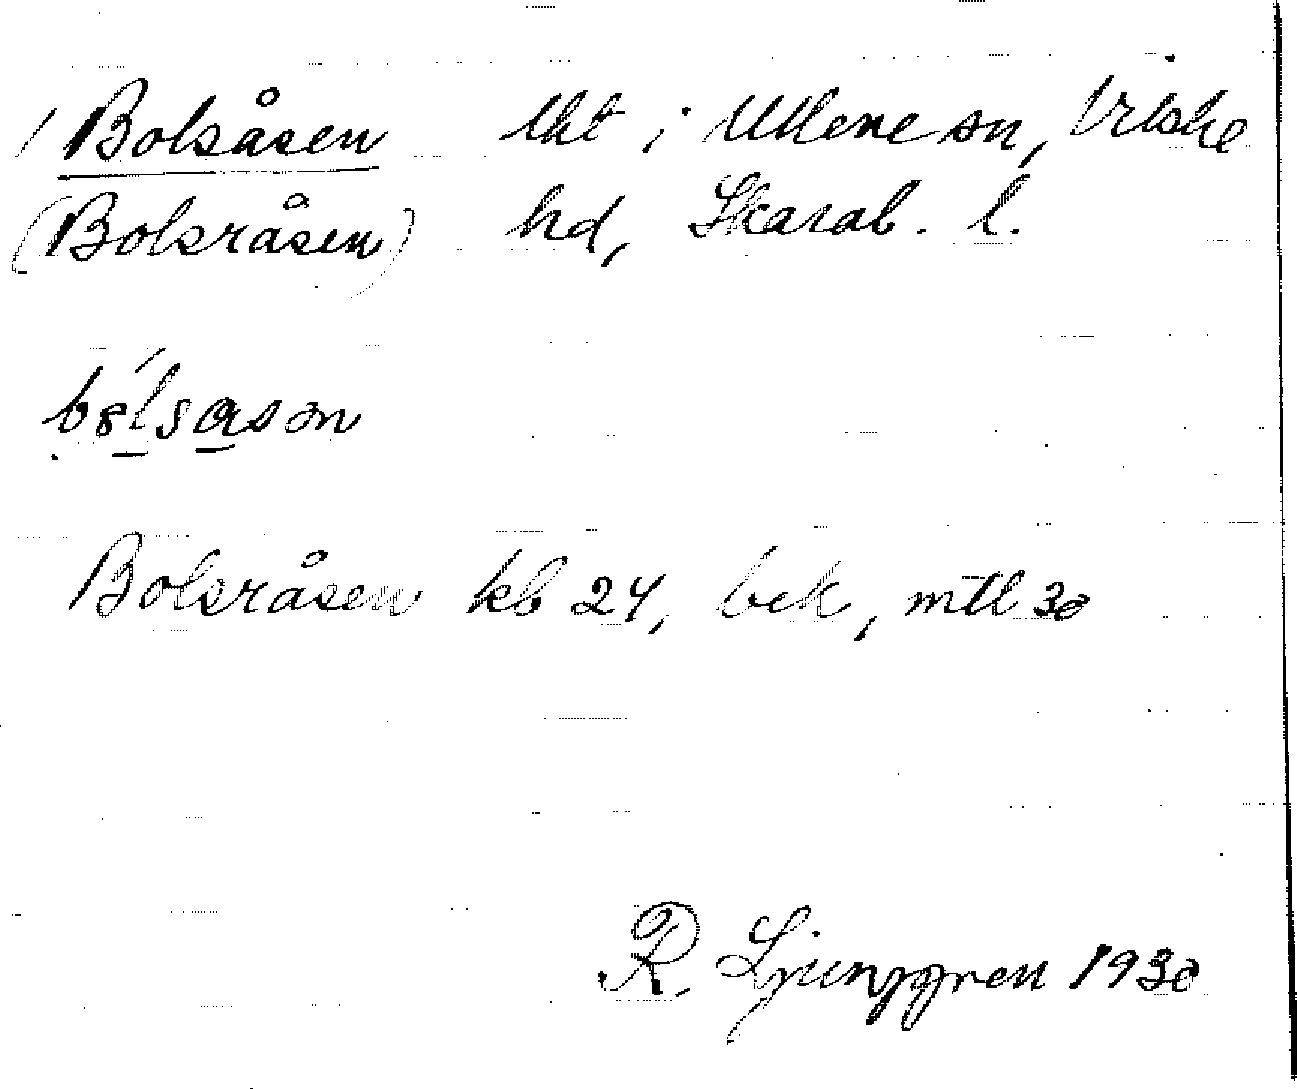 / Bolsåsen lht i Ullene sn, Vilske
(Bolsråsen) hd, Skarab. l.
Bolsråsen kb 24, bek, mtl 30
R. Ljunggren 1930